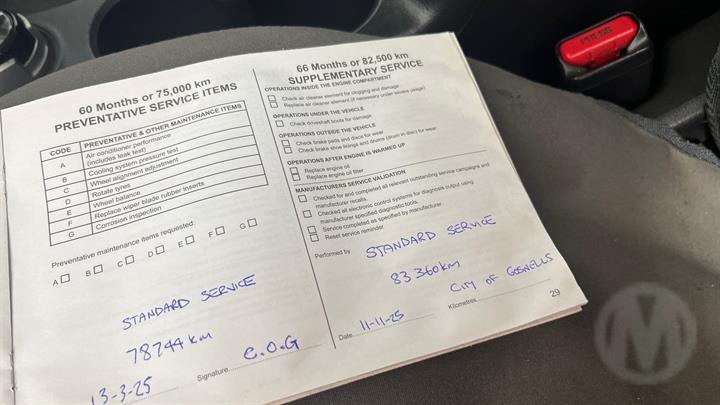 60 Months or 75,000 km
PREVENTATIVE SERVICE ITEMS
CODE PREVENTATIVE & OTHER MAINTENANCE ITEMS
A Air conditioner performance
(includes leak test)
B Cooling system pressure test
C Wheel alignment adjustment
D Rotate tyres
E Wheel balance
F Replace wiper blade rubber inserts
G Corrosion inspection
Preventative maintenance items requested:
A B C D E F G
STANDARD SERVICE
78244 km
13-3-25 Signature e.O.G
66 Months or 82,500 km
SUPPLEMENTARY SERVICE
OPERATIONS INSIDE THE ENGINE COMPARTMENT
Check air cleaner element for clogging and damage
Replace air cleaner element (if necessary under severe usage)
OPERATIONS UNDER THE VEHICLE
Check driveshaft boots for damage
OPERATIONS OUTSIDE THE VEHICLE
Check brake pads and discs for wear
Check brake shoe linings and drums (drum in disc) for wear
OPERATIONS AFTER ENGINE IS WARMED UP
Replace engine oil
Replace engine oil filter
MANUFACTURERS SERVICE VALIDATION
Checked for and completed all relevant outstanding service campaigns and
manufacturer recalls.
Checked all electronic control systems for diagnosis output using
manufacturer specified diagnostic tools.
Service completed as specified by manufacturer.
Reset service reminder
Performed by STANDARD SERVICE
83360km
CITY OF GOSNELLS
Date 11-11-25 Kilometres
29
PRESS
M